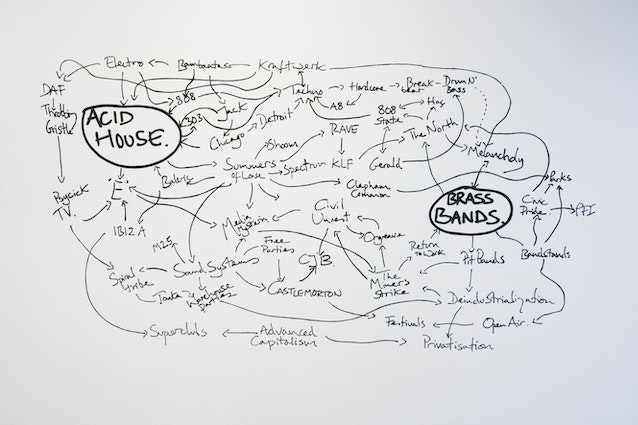 Electro
Bambaataa
Kraftwerk
DAF
Throbbing
Gristle
ACID
HOUSE.
808
303
Jack
Chicago
Detroit
Techno
Hardcore
Break-
beat
Drum N'
Bass
A8
808
State
Has
The North
Melancholy
RAVE
Shoom
Summers
of Love
Spectrum
KLF
Gerald
Balearic
'E'
Psychick
TV.
IBIZA
Clapham
Common
BRASS
BANDS.
Parks
Civic
Pride.
PFI
Media
Hysteria
Civil
Unrest
Orgreave
Return
to Work
Pit Bands
Bandstands
M25
Free
Parties
CJB.
Spiral
tribe
Sound Systems
Warehouse
parties
CASTLEMORTON
The
Miners
Strike
Deindustrialization
Festivals
Open Air.
Superclubs
Advanced
Capitalism
Privatisation